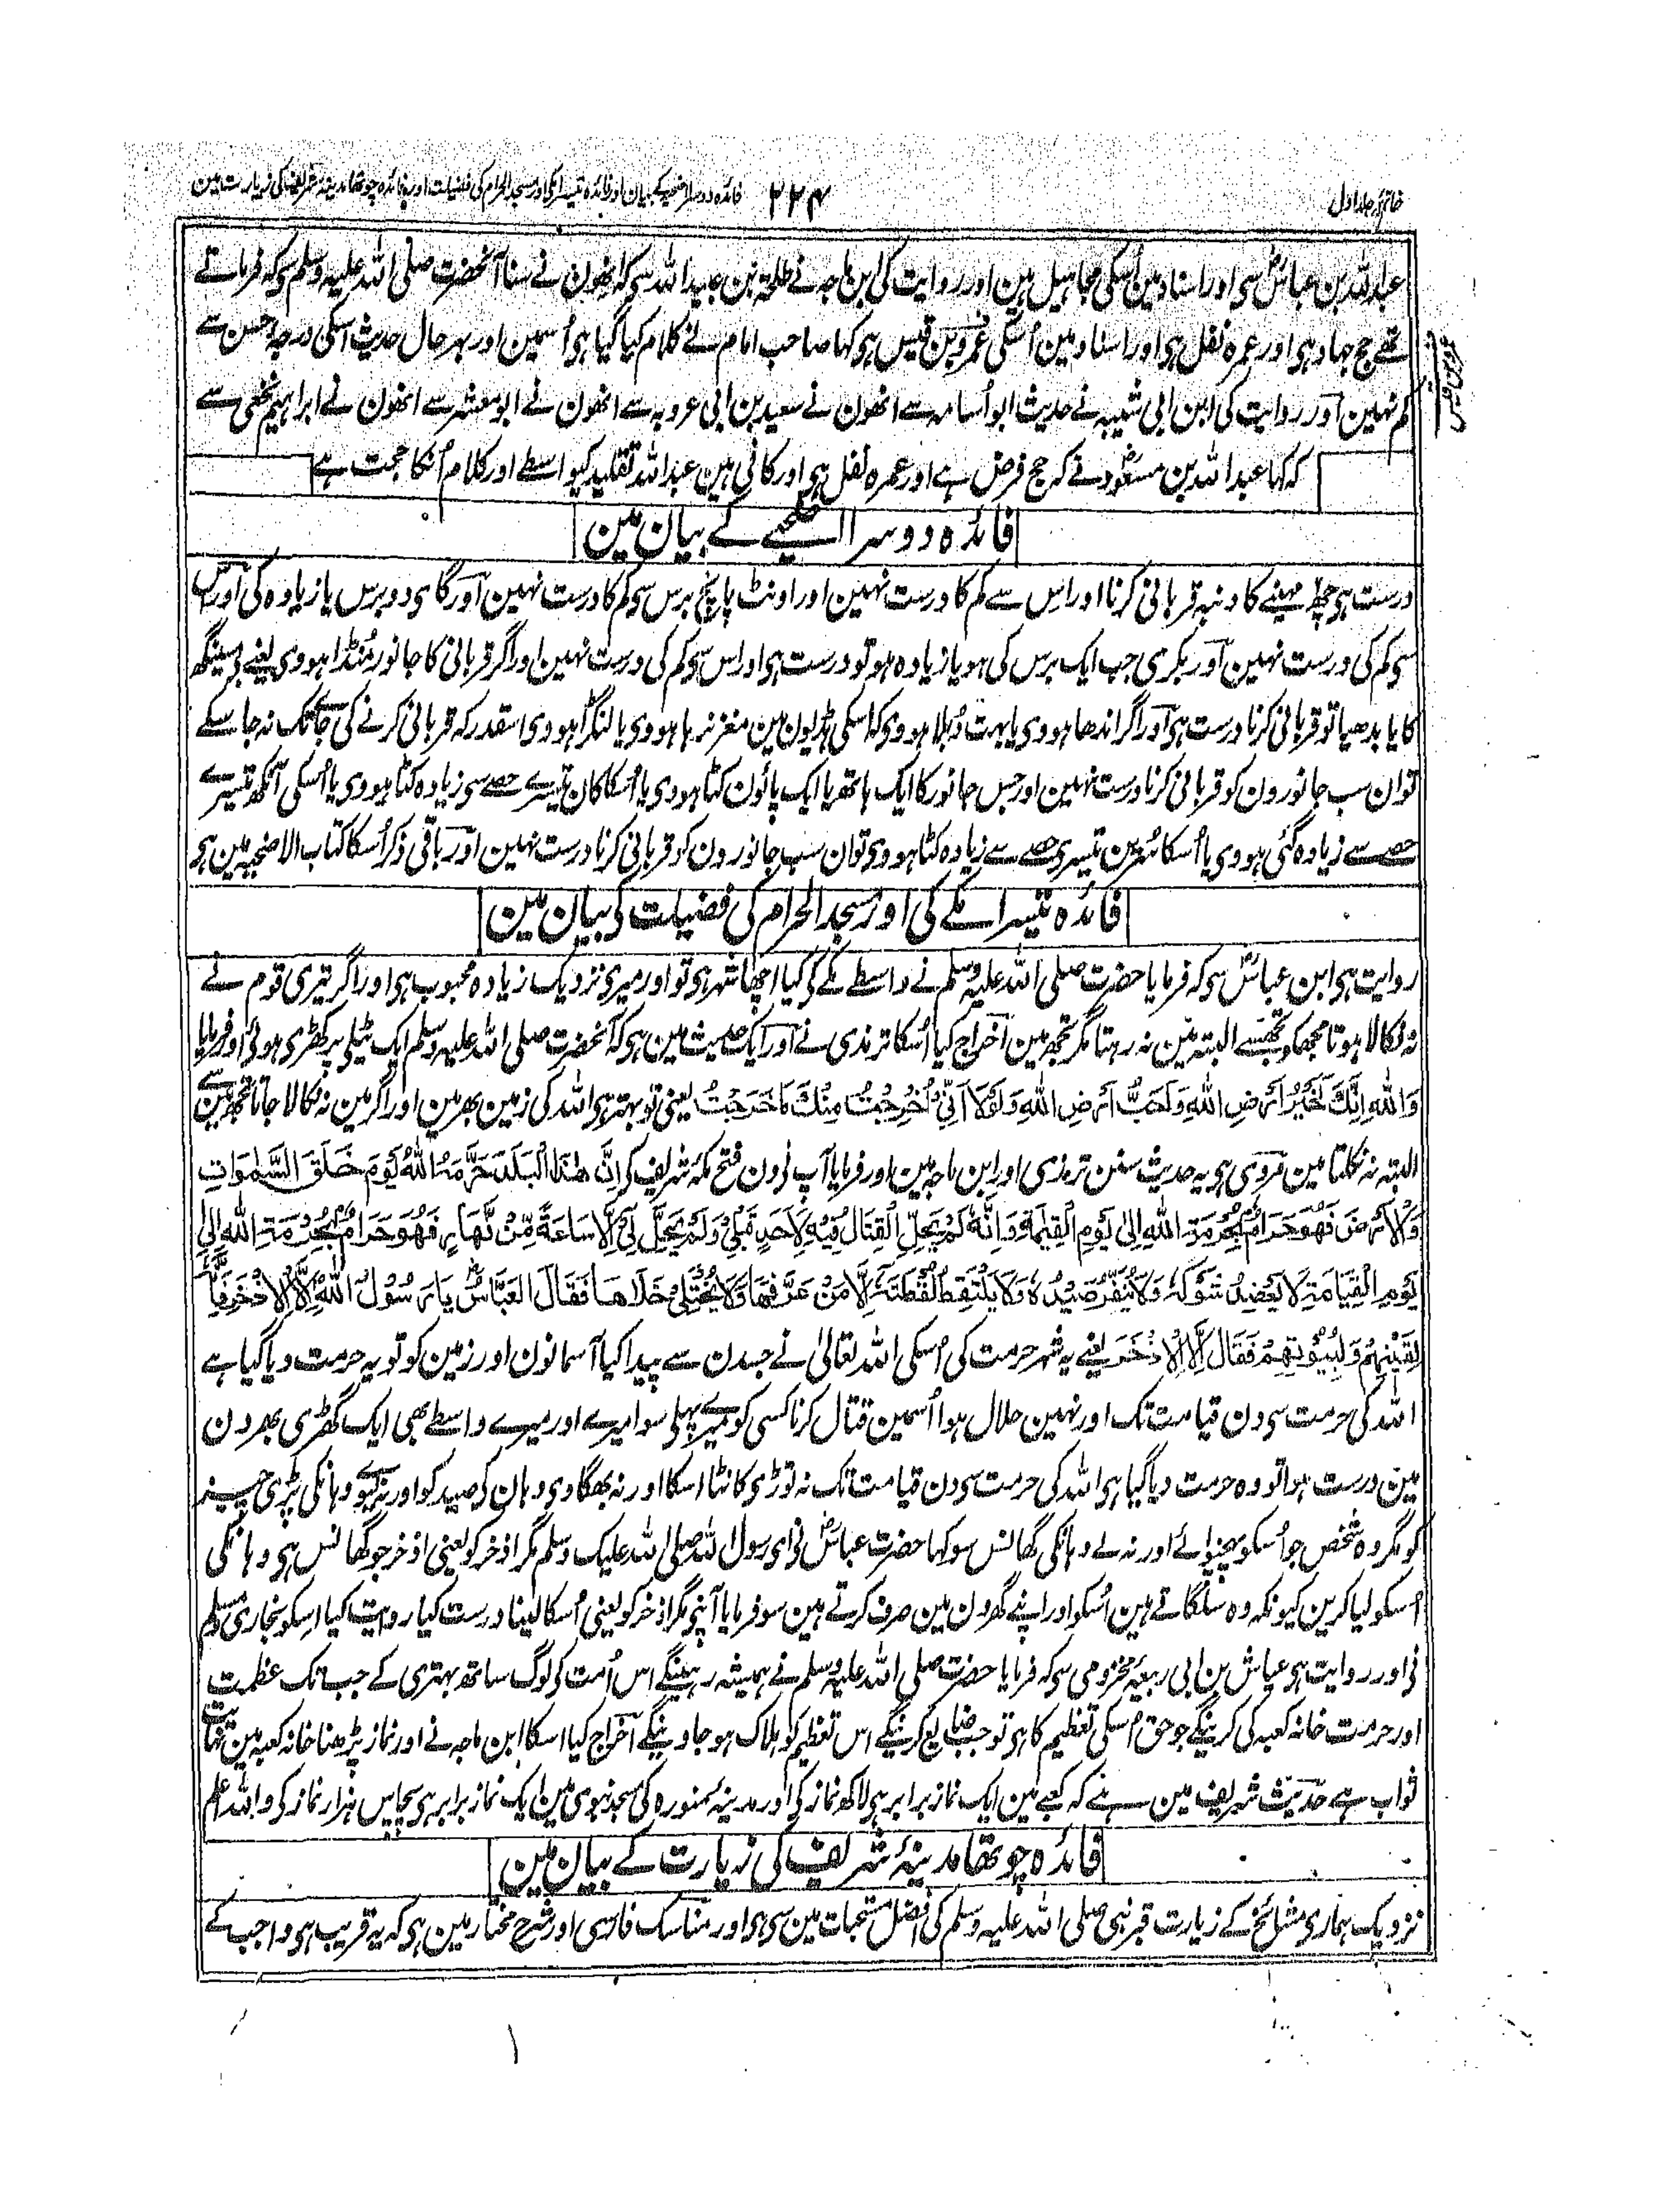 خاتمہ جلد اول
۲۲۴
فائدہ دوسرا اضحیے کے بیان اور فائدہ تیسرا مکے کی اور مسجد الحرام کی فضیلت اور فائدہ چوتھا مدینۂ شریف کی زیارت مین
عبد اللہ بن عباسؓ سی اور اسناد مین اُسکی مجاہیل ہین اور روایت کی ابن ماجہ نے طلحۃ بن عبید اللہ سی کہ انھون نے سنا آنحضرت صلی اللہ علیہ وسلم سی کہ فرماتے
تھے حج جہاد ہی اور عمرہ نفل ہی اور اسناد مین اُسکی عمرو بن قیس ہی کہا صاحب امام نے کلام کیا گیا ہی اُسمین اور بہر حال حدیث اسکی درجہ حسن سے
کم نہین اور روایت کی ابن ابی شیبہ نے حدیث ابو اُسامہ سے انھون نے سعید بن ابی عروبہ سے انھون نے ابو معشر سے انھون نے ابراہیم نخعی سے
کہ کہا عبد اللہ بن مسعودؓ نے کہ حج فرض ہے اور عمرہ نفل ہی اور کافی ہین عبد اللہ تقلید کیواسطے اور کلام اُنکا حجت ہے
عمرو بن قیس
فائدہ دوسرا اضحیے کے بیان مین
درست ہی چھ مہینے کا دنبہ قربانی کرنا اور اس سے کم کا درست نہین اور اونٹ پانچ برس سی کم کا درست نہین اور گای دو برس یا زیادہ کی اور اس
سی کم کی درست نہین اور بکری جب ایک برس کی ہو یا زیادہ ہو تو درست ہی اور اس سی کم کی درست نہین اور اگر قربانی کا جانور مُنڈا ہووی یعنے بی سینگھ
کا یا بدھیا تو قربانی کرنا درست ہی اور اگر اندھا ہووی یا بہت دُبلا ہووی کہ اسکی ہڈیون مین مغز نہ رہا ہووی یا لنگڑا ہووی اسقدر کہ قربانی کرنے کی جاگے تک نہ جا سکے
تو ان سب جانورون کو قربانی کرنا درست نہین اور جس جانور کا ایک ہاتھ یا ایک پائون کٹا ہووی یا اُسکا کان تیسرے حصے سی زیادہ کٹا ہووی یا اُسکی آنکھ تیسرے
حصے سے زیادہ گئی ہووی یا اُسکا سُرین تیسری حصے سے زیادہ کٹا ہووی تو ان سب جانورون کو قربانی کرنا درست نہین اور باقی ذکر اُسکا کتاب الاضحیہ مین ہی
فائدہ تیسرا مکے کی اور مسجد الحرام کی فضیلت کی بیان مین
روایت ہی ابن عباسؓ سی کہ فرمایا حضرت صلی اللہ علیہ وسلم نے واسطے مکے کے کیا اچھا شہر ہی تو اور میری نزدیک زیادہ محبوب ہی اور اگر تیری قوم نے
نہ نکالا ہوتا مجھکو تجھسے البتہ مین نہ رہتا مگر تجھ مین اخراج کیا اُسکا ترمذی نے اور ایک حدیث مین ہی کہ آنحضرت صلی اللہ علیہ وسلم ایک ٹیلی پر کھڑی ہوئی اور فرمایا
وَاللهِ اِنَّكَ لَخَيْرُ اَرْضِ اللهِ وَلَحَبُّ اَرْضِ اللهِ وَلَوْلَا اَنِّيْ اُخْرِجْتُ مِنْكَ مَا خَرَجْتُ یعنی تو بہتر ہی اللہ کی زمین بھر مین اور اگر مین نہ نکالا جاتا تجھ مین سے
البتہ نہ نکلتا مین مروی ہی یہ حدیث سنن ترمذی اور ابن ماجہ مین اور فرمایا آپ نی دن فتح مکہ شریف کی اِنَّ هٰذَا الْبَلَدَ حَرَّمَهُ اللهُ يَوْمَ خَلَقَ السَّمٰوَاتِ
وَالْاَرْضَ فَهُوَ حَرَامٌ بِحُرْمَةِ اللهِ اِلٰى يَوْمِ الْقِيٰمَةِ وَاِنَّهٗ لَمْ يَحِلَّ الْقِتَالُ فِيْهِ لِاَحَدٍ قَبْلِيْ وَلَمْ يَحِلَّ لِيْ اِلَّا سَاعَةً مِّنْ نَّهَارٍ فَهُوَ حَرَامٌ بِحُرْمَةِ اللهِ اِلٰى
يَوْمِ الْقِيَامَةِ لَا يُعْضَدُ شَوْكُهٗ وَلَا يُنَفَّرُ صَيْدُهٗ وَلَا يَلْتَقِطُ لُقْطَتَهٗ اِلَّا مَنْ عَرَّفَهَا وَلَا يُخْتَلٰى خَلَاهَا فَقَالَ الْعَبَّاسُؓ يَا رَسُوْلَ اللهِ اِلَّا الْاِذْخَرَ فَاِنَّهٗ
لِقَيْنِهِمْ وَلِبُيُوْتِهِمْ فَقَالَ اِلَّا الْاِذْخَرَ یعنے یہ شہر حرمت کی اُسکی اللہ تعالیٰ نے جسدن سے پیدا کیا آسمانون اور زمین کو تو یہ حرمت دیا گیا ہے
اللہ کی حرمت سی دن قیامت تک اور نہین حلال ہوا اُسمین قتال کرنا کسی کو میرے پہلی سوا میرے اور میرے واسطے بھی ایک گھڑی بھر دن
مین درست ہوا تو وہ حرمت دیا گیا ہی اللہ کی حرمت سی دن قیامت تک نہ توڑی کانٹا اسکا اور نہ بھگاوی وہان کی صید کو اور نہ لیوے وہانکی پڑی چیز
کو مگر وہ شخص جو اُسکو پہنچوائے اور نہ لے وہانکی گھانس سو کہا حضرت عباسؓ نی ای رسول اللہ صلی اللہ علیک وسلم مگر اذخر کو یعنی اذخر جو گھانس ہی وہانکی
اسکو لیا کرین کیونکہ وہ سلگاتے ہین اُسکو اور اپنے گھرون مین صرف کرتے ہین سو فرمایا آپنی مگر اذخر کو یعنی اُسکا لینا درست کیا روایت کیا اسکو بخاری مسلم
نی اور روایت ہی عیاش بن ابی ربیعہ مخزومی سی کہ فرمایا حضرت صلی اللہ علیہ وسلم نے ہمیشہ رہینگے اس اُمت کی لوگ ساتھ بہتری کے جب تک عظمت
اور حرمت خانہ کعبہ کی کرینگے جو حق اُسکی تعظیم کا ہی تو جب ضایع کرینگے اس تعظیم کو ہلاک ہو جاوینگے اخراج کیا اسکا ابن ماجہ نے اور نماز پڑھنا خانہ کعبہ مین نہایت
ثواب ہے حدیث شریف مین ہے کہ کعبے مین ایک نماز برابر ہی لاکھ نماز کی اور مدینۂ منورہ کی مسجد نبوی مین ایک نماز برابر ہی پچاس ہزار نماز کی واللہ اعلم
فائدہ چوتھا مدینۂ شریف کی زیارت کے بیان مین
نزدیک ہماری مشائخ کے زیارت قبر نبی صلی اللہ علیہ وسلم کی افضل مستحبات مین سی ہی اور مناسک فارسی اور شرح مختار مین ہی کہ یہ قریب ہی واجب کے